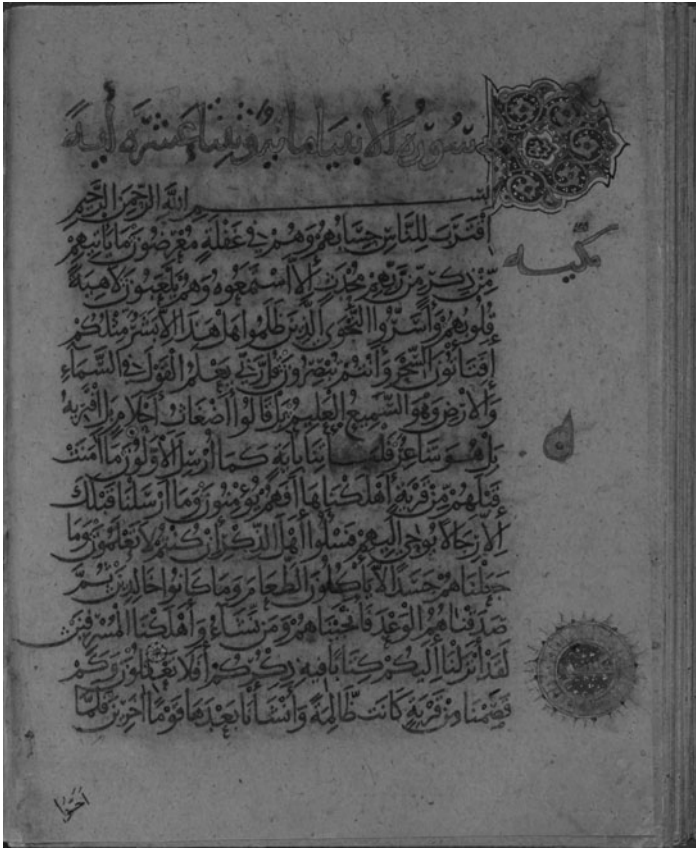 سورة الانبيا مايه واثنتا عشره آية
بسم الله الرحمن الرحيم
مكية
اقترب للناس حسابهم وهم في غفلة معرضون ما يأتيهم
من ذكر من ربهم محدث الا استمعوه وهم يلعبون لاهية
قلوبهم وأسروا النجوى الذين ظلموا هل هذا الا بشر مثلكم
أفتأتون السحر وأنتم تبصرون قل ربي يعلم القول في السماء
والارض وهو السميع العليم بل قالوا أضغاث أحلام بل افتريه
بل هو شاعر فليأتنا بآية كما أرسل الاولون ما آمنت
قبلهم من قرية أهلكناها أفهم يؤمنون وما أرسلنا قبلك
الا رجالا يوحى اليهم فسئلوا أهل الذكر ان كنتم لا تعلمون وما
جعلناهم جسدا لا يأكلون الطعام وما كانوا خالدين ثم
صدقناهم الوعد فأنجيناهم ومن نشاء وأهلكنا المسرفين
لقد أنزلنا اليكم كتابا فيه ذكركم أفلا تعقلون وكم
قصمنا من قرية كانت ظالمة وأنشأنا بعدها قوما آخرين فلما
أحسوا